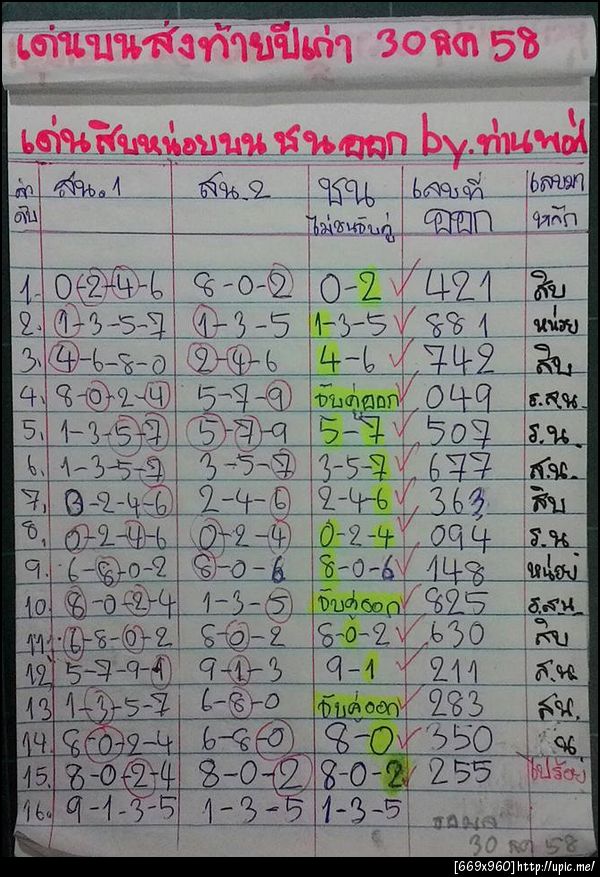 เด่นบนส่งท้ายปีเก่า 30 ธค 58
เด่นสิบหน่อยบน ชน ออก by.ท่านพ่อ
ลำดับ สน.1 สน.2 ชน ไม่ชนจับคู่ เลขที่ออก เลขมาหลัก
1. 0-2-4-6 8-0-2 0-2 421 สิบ
2. 1-3-5-7 1-3-5 1-3-5 881 หน่อย
3. 4-6-8-0 2-4-6 4-6 742 สิบ
4. 8-0-2-4 5-7-9 จับคู่ออก 049 ร.ส.น.
5. 1-3-5-7 5-7-9 5-7 507 ร.น.
6. 1-3-5-7 3-5-7 3-5-7 677 ส.น.
7. 0-2-4-6 2-4-6 2-4-6 363 สิบ
8. 0-2-4-6 0-2-4 0-2-4 094 ร.น
9. 6-8-0-2 8-0-6 8-0-6 148 หน่อย
10. 8-0-2-4 1-3-5 จับคู่ออก 825 ร.ส.น.
11. 6-8-0-2 8-0-2 8-0-2 630 สิบ
12 5-7-9-1 9-1-3 9-1 211 ส.น.
13 1-3-5-7 6-8-0 จับคู่ออก 283 สน.
14. 8-0-2-4 6-8-0 8-0 350 น
15. 8-0-2-4 8-0-2 8-0-2 255 ไปร้อย
16. 9-1-3-5 1-3-5 1-3-5
30 ธค 58
[669x960]http://upic.me/